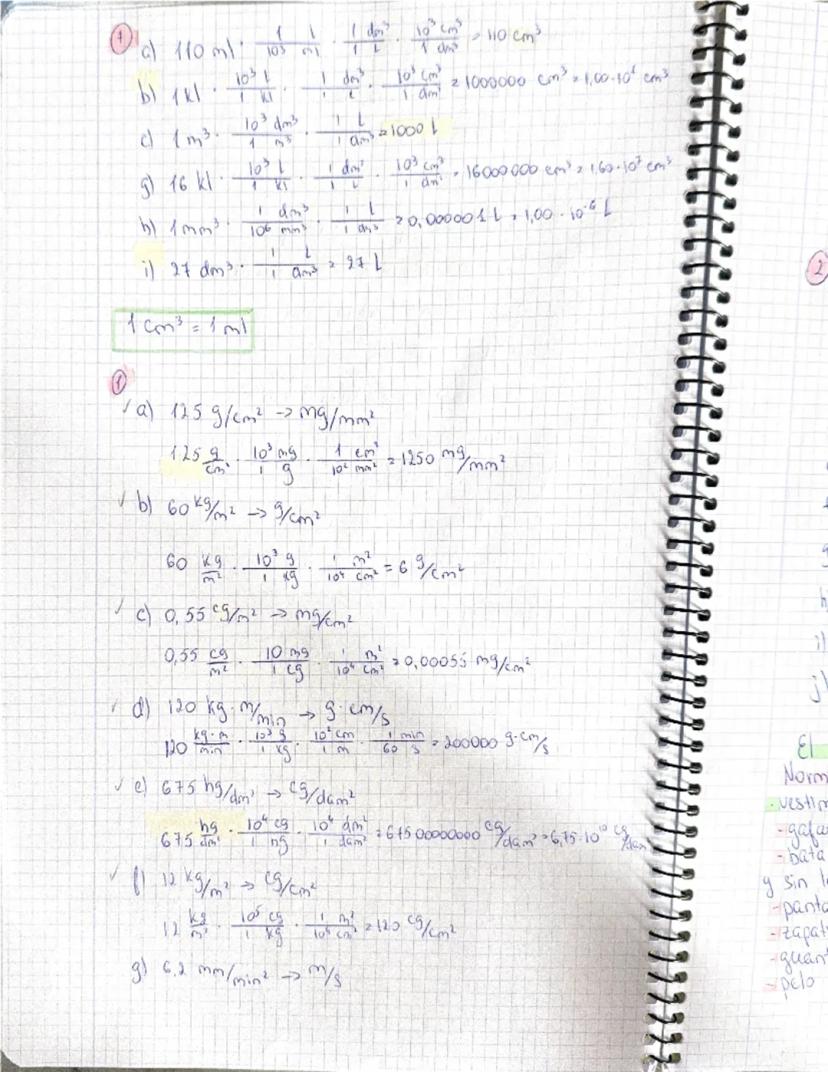 1
a) 110 ml · 1 l/10³ ml · 1 dm³/1 l · 10³ cm³/1 dm³ = 110 cm³
b) 1 kl · 10³ l/1 kl · 1 dm³/1 l · 10³ cm³/1 dm³ = 1000000 cm³ = 1,00·10⁶ cm³
c) 1 m³ · 10³ dm³/1 m³ · 1 l/1 dm³ = 1000 l
g) 16 kl · 10³ l/1 kl · 1 dm³/1 l · 10³ cm³/1 dm³ = 16000000 cm³ = 1,60·10⁷ cm³
h) 1 mm³ · 1 dm³/10⁶ mm³ · 1 l/1 dm³ = 0,000001 l = 1,00 · 10⁻⁶ l
i) 27 dm³ · 1 l/1 dm³ = 27 l
1 cm³ = 1 ml
1
a) 125 g/cm² → mg/mm²
125 g/cm² · 10³ mg/1 g · 1 cm²/10² mm² = 1250 mg/mm²
b) 60 kg/m² → g/cm²
60 kg/m² · 10³ g/1 kg · 1 m²/10⁴ cm² = 6 g/cm²
c) 0,55 cg/m² → mg/cm²
0,55 cg/m² · 10 mg/1 cg · 1 m²/10⁴ cm² = 0,00055 mg/cm²
d) 120 kg·m/min → g·cm/s
120 kg·m/min · 10³ g/1 kg · 10² cm/1 m · 1 min/60 s = 200000 g·cm/s
e) 675 hg/dm² → cg/dam²
675 hg/dm² · 10⁴ cg/1 hg · 10⁴ dm²/1 dam² = 67500000000 cg/dam² = 6,75·10¹⁰ cg/dam²
f) 12 kg/m² → cg/cm²
12 kg/m² · 10⁵ cg/1 kg · 1 m²/10⁴ cm² = 120 cg/cm²
g) 6,2 mm/min² → m/s
2
h)
i)
j)
El
Norm
· vestim
- gafa
- bata
y sin
- panta
- zapat
- guan
- pelo